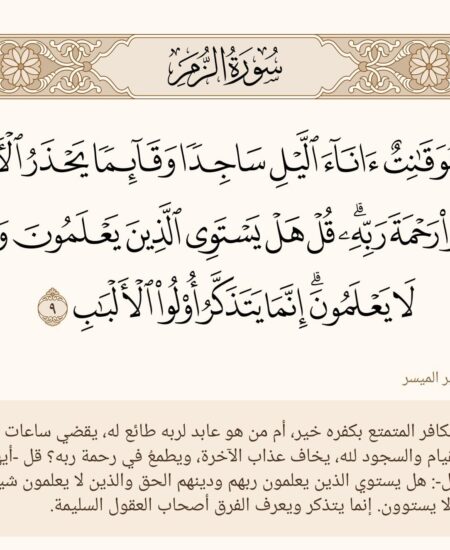 سُورَةُ الزُّمَرِ
قَٰنِتٌ ءَانَآءَ ٱلَّيْلِ سَاجِدًا وَقَآئِمًا يَحْذَرُ
رَحْمَةَ رَبِّهِۦۗ قُلْ هَلْ يَسْتَوِى ٱلَّذِينَ يَعْلَمُونَ
لَا يَعْلَمُونَۗ إِنَّمَا يَتَذَكَّرُ أُو۟لُوا۟ ٱلْأَلْبَٰبِ ٩
الميسر
المتمتع بكفره خير، أم من هو عابد لربه طائع له، يقضي ساعات
والسجود لله، يخاف عذاب الآخرة، ويطمع في رحمة ربه؟ قل
هل يستوي الذين يعلمون ربهم ودينهم الحق والذين لا يعلمون
لا يستوون. إنما يتذكر ويعرف الفرق أصحاب العقول السليمة.